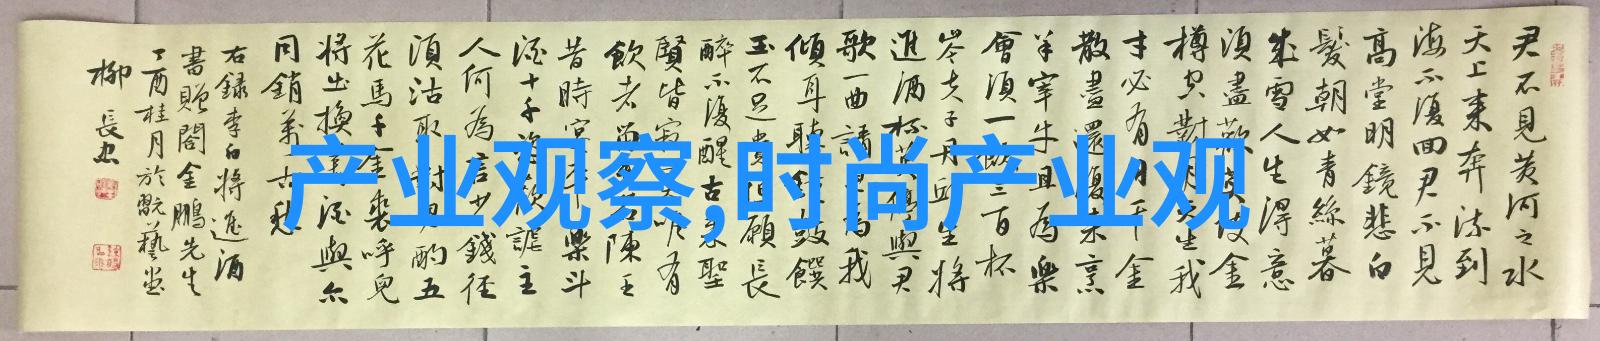 产业观察,时尚产业观
君不見黄河之水
天上来奔流到
海不復回君不見
高堂明鏡悲白
髮朝如青絲暮
成雪人生得意
須盡歡莫使金
樽空對月天生我
才必有用千金
散盡還復来烹
羊宰牛且為樂
會須一飲三百杯
岑夫子丹丘生將
進酒杯莫停與君
歌一曲請君為我
傾耳聽鐘鼓饌
玉不足貴但願長
醉不復醒古来聖
賢皆寂寞唯有
飲者留其名陳王
昔時宴平樂斗
酒十千恣歡謔主
人何為言少錢徑
須沽取對君酌五
花馬千金裘呼兒
將出換美酒與尔
同銷萬古愁
右録李白將進酒
書贈閣金鵬先生
丁酉桂月於翫藝堂
柳長忠